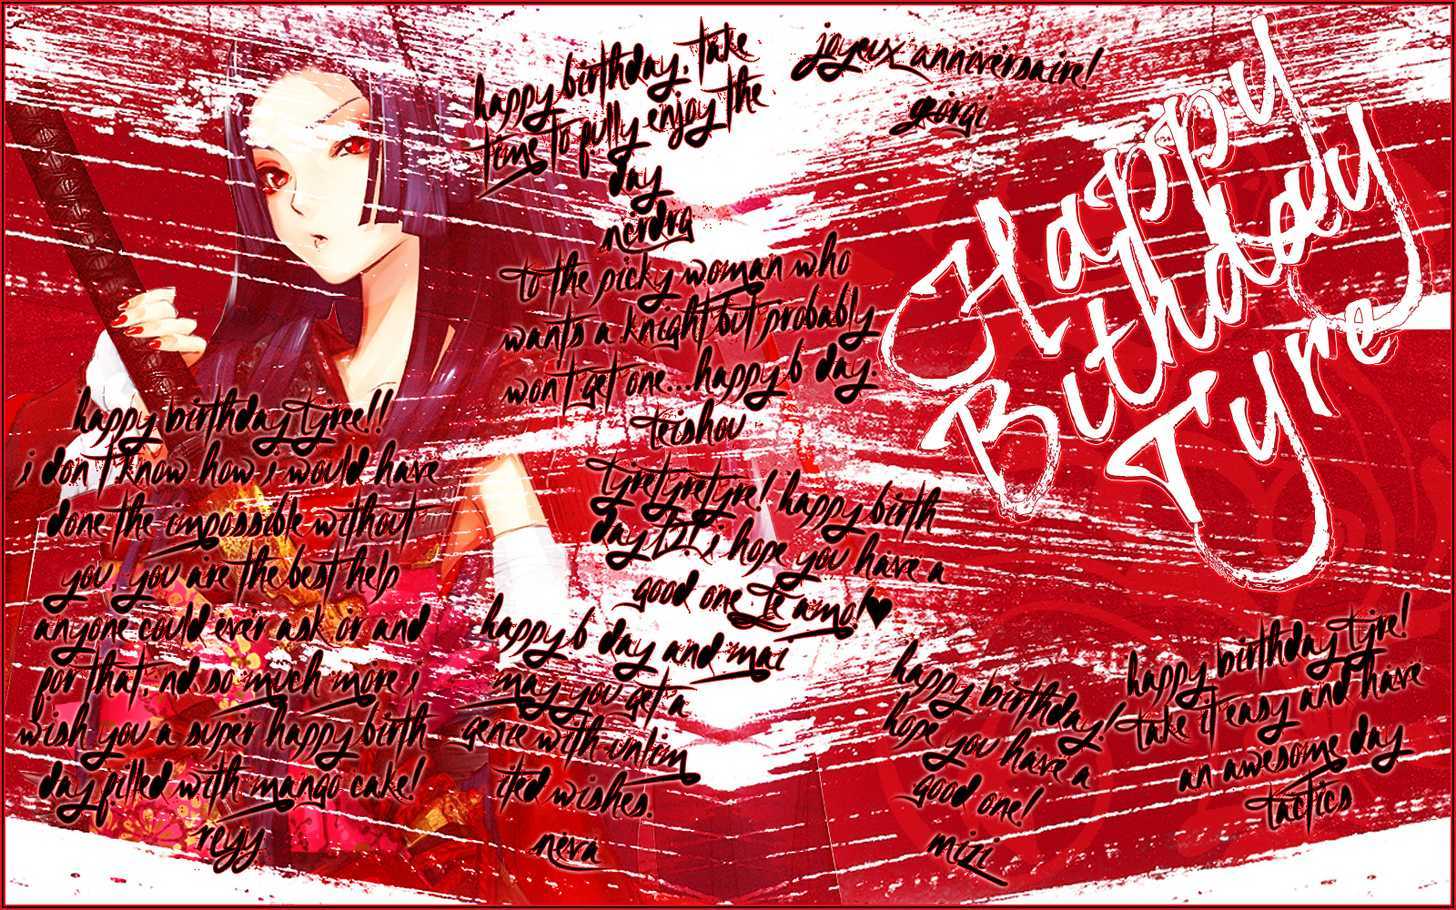 happy birthday. take
time to fully enjoy the
day
nerdra
joyeux anniversaire!
georgi
Happy
Bithday
Tyre
to the picky woman who
wants a knight but probably
won't get one...happy b day.
teishou
happy birthday tyree!!
i don't know how i would have
done the impossible without
you. you are the best help
anyone could ever ask or and
for that, nd so much more i
wish you a super happy birth
day filled with mango cake!
reyy
tyretyretyre! happy birth
day i hope you have a
good one. Te amo!♥
happy b day and mai
may you get a
genie with unlim
ited wishes.
neva
happy birthday!
hope you have a
good one!
mizi
happy birthday tyre!
take it easy and have
an awesome day
tactics